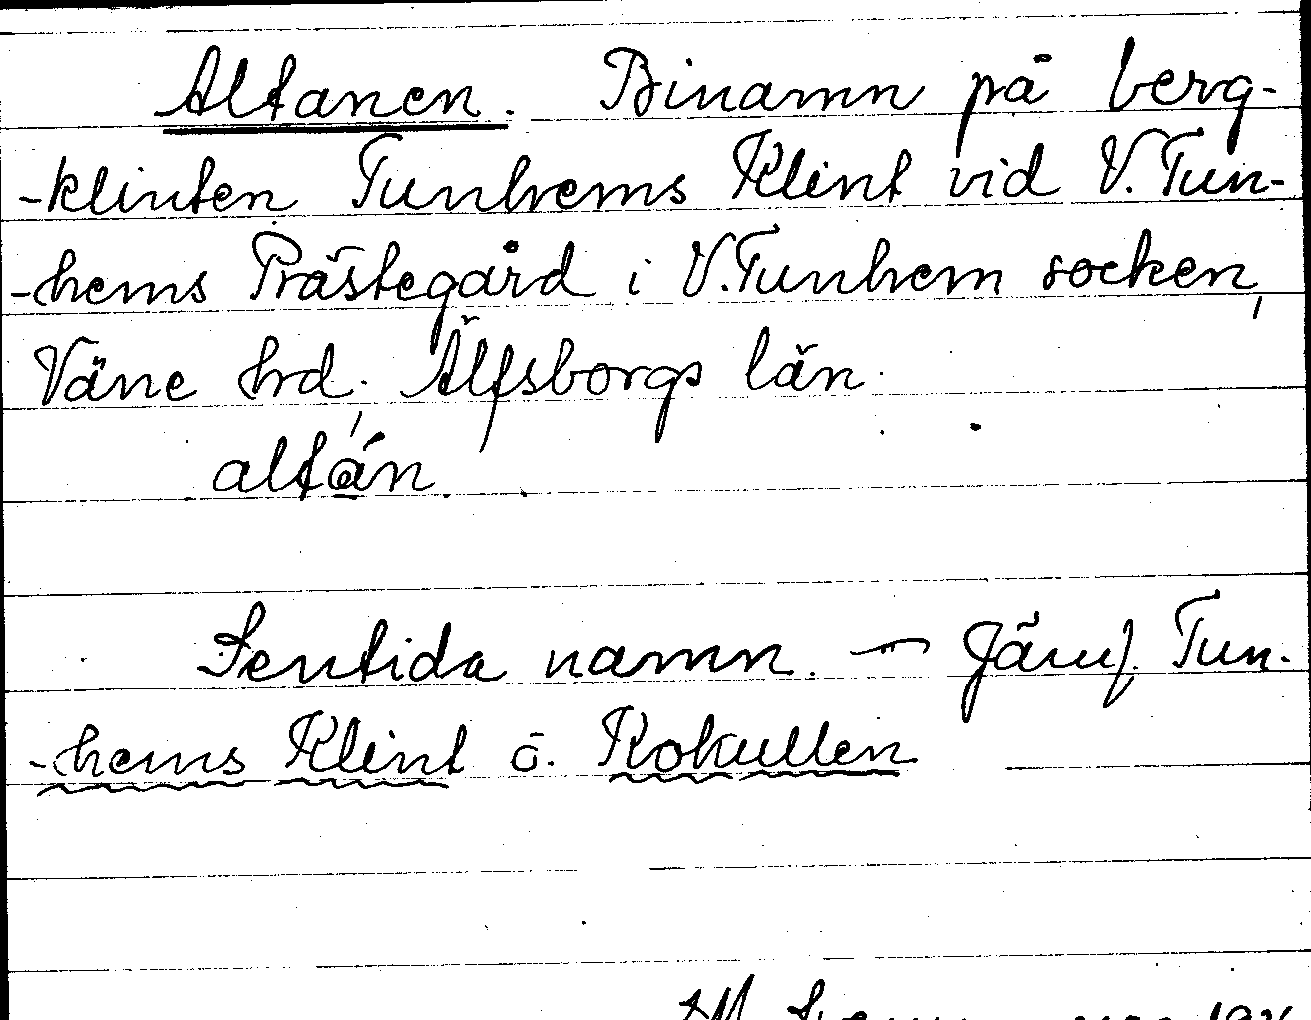 Altanen. Binamn på berg-
-klinten Tunhems Klint vid V. Tun-
-hems Prästegård i V. Tunhem socken,
Väne hrd, Älfsborgs län.
altán
Sentida namn. — Jämf. Tun-
-hems Klint o. Kokullen